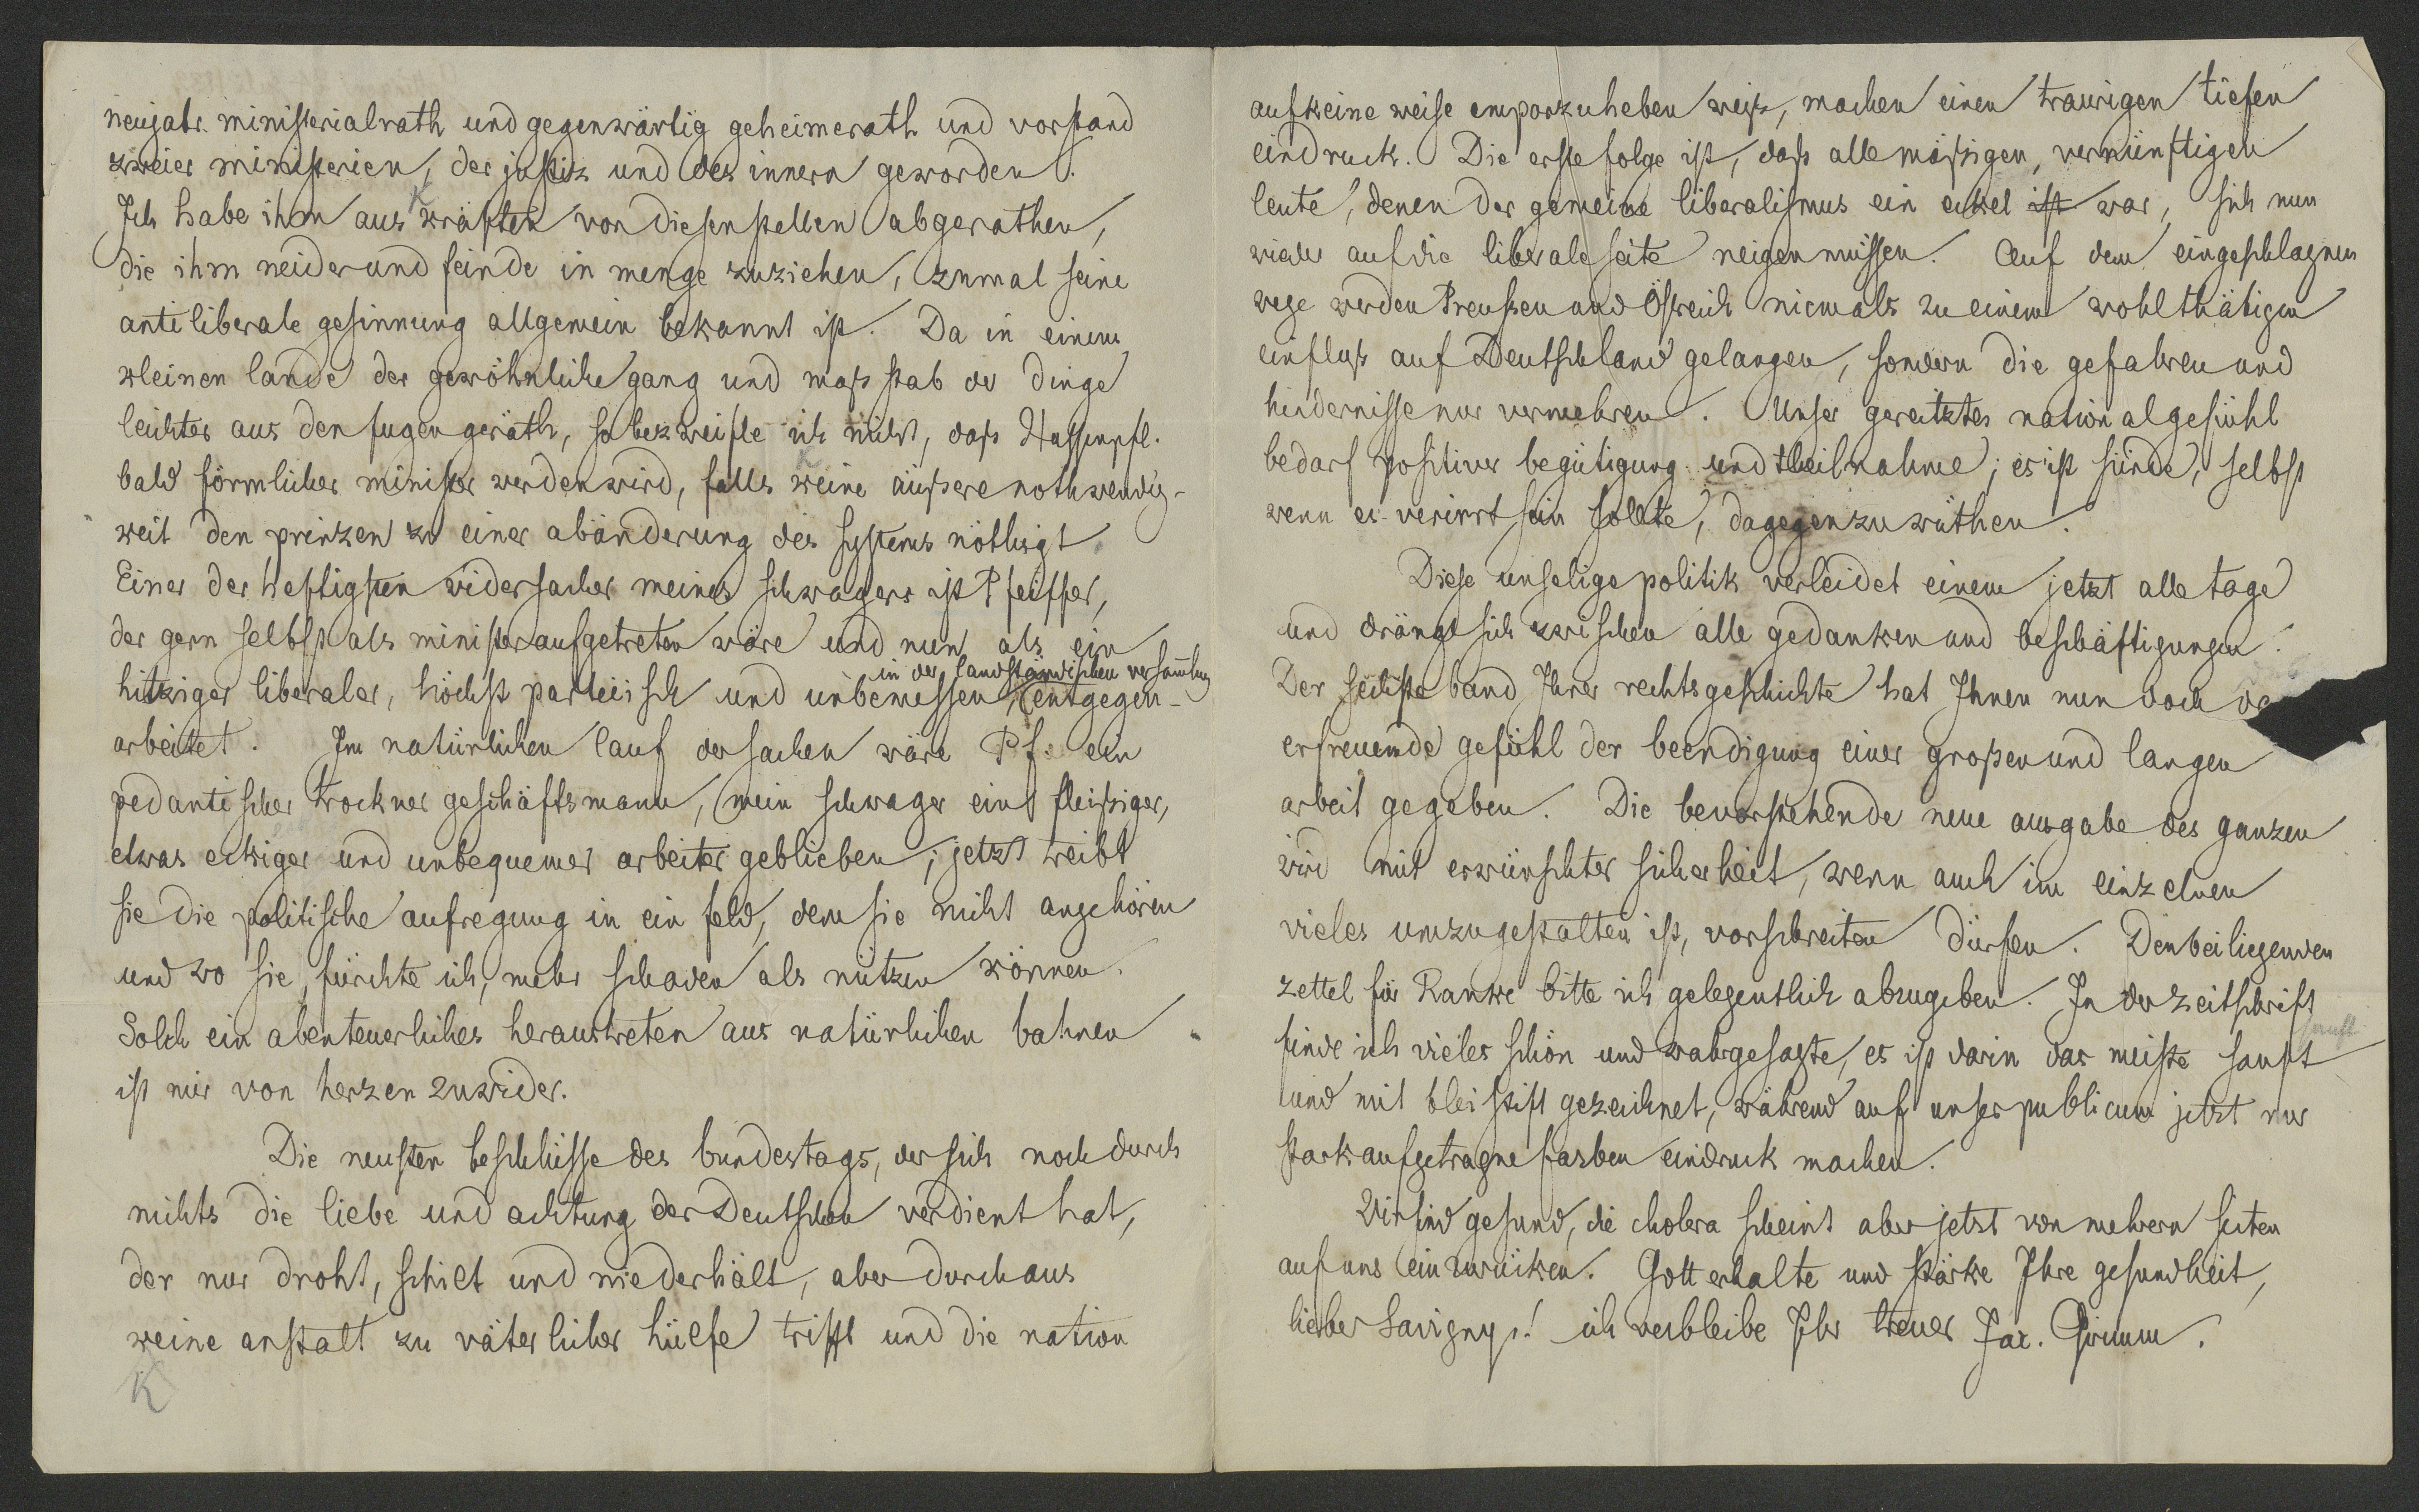 neujahr ministerialrath und gegenwärtig geheimerath und vorstand
zweier ministerien, der justiz und des innern geworden.
Ich habe ihm aus kräften von diesen stellen abgerathen,
die ihm neider und feinde in menge zuziehen, zumal seine
antiliberale gesinnung allgemein bekannt ist. Da in einem
kleinen lande der gewöhnliche gang und maßstab der dinge
leichter aus den fugen geräth, so bezweifle ich nicht, daß Hassenpfl.
bald förmlicher minister werden wird, falls keine äußere nothwendig-
keit den prinzen zu einer abänderung des systems nöthigt.
Einer der heftigsten widersacher meines schwagers ist Pfeiffer,
der gern selbst als minister aufgetreten wäre und nun als ein
in der landständischen versamlung
hitziger liberaler, höchst parteiisch und unbemessen, entgegen-
arbeitet. Im natürlichen lauf der sachen wäre Pf. ein
pedantischer trockner geschäftsmann, mein schwager ein fleißiger,
etwas eckiger und unbequemer arbeiter geblieben; jetzt treibt
sie die politische aufregung in ein feld, dem sie nicht angehören
und wo sie, fürchte ich, mehr schaden als nützen können.
Solch ein abenteuerliches heraustreten aus natürlichen bahnen
ist mir von herzen zuwider.
Die neusten beschlüsse des bundestags, der sich noch durch
nichts die liebe und achtung der Deutschen verdient hat,
der nur droht, schilt und niederhält, aber durchaus
keine anstalt zu väterlicher hülfe trifft und die nation
K
auf keine weise emporzuheben weiß, machen einen traurigen tiefen
eindruck. Die erste folge ist, daß alle mäßigen, vernünftigen
leute, denen der gemeine liberalismus ein eckel ist war, sich nun
wieder auf die liberale seite neigen müssen. Auf dem eingeschlagnen
wege werden Preußen und Östreich niemals zu einem wohlthätigen
einfluß auf Deutschland gelangen, sondern die gefahren und
hindernisse nur vermehren. Unser gereitztes nationalgefühl
bedarf positiver begütigung und theilnahme; es ist sünde, selbst
wenn es verirrt sein sollte, dagegen zu wüthen.
Diese unselige politik verleidet einem jetzt alle tage
und drängt sich zwischen alle gedanken und beschäftigungen.
Der sechste band Ihrer rechtsgeschichte hat Ihnen nun doch da
erfreuende gefühl der beendigung einer großen und langen
arbeit gegeben. Die bevorstehende neue ausgabe des ganzen
wird mit erwünschter sicherheit, wenn auch im einzelnen
vieles umzugestalten ist, vorschreiten dürfen. Den beiliegenden
zettel für Ranke bitte ich gelegentlich abzugeben. In der zeitschrift
finde ich vieles schön und wahrgesagte, es ist darin das meiste sanft
sanft
und mit bleistift gezeichnet, während auf unser publicum jetzt nur
stark aufgetragne farben eindruck machen.
Wir sind gesund, die cholera scheint aber jetzt von mehrern seiten
auf uns einzurücken. Gott erhalte und stärke Ihre gesundheit,
lieber Savigny! ich verbleibe Ihr treuer Jac. Grimm.